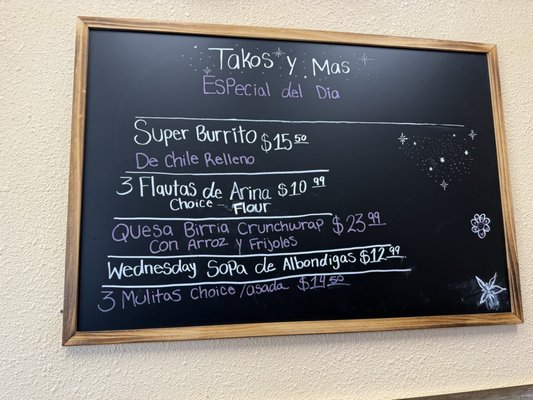 Takos y Mas
Especial del Día
Super Burrito $15 50
De Chile Relleno
3 Flautas de Arina $10 99
Choice - Flour
Quesa Birria Crunchwrap $23 99
Con Arroz y Frijoles
Wednesday Sopa de Albondigas $12 99
3 Mulitas Choice/asada $14 50